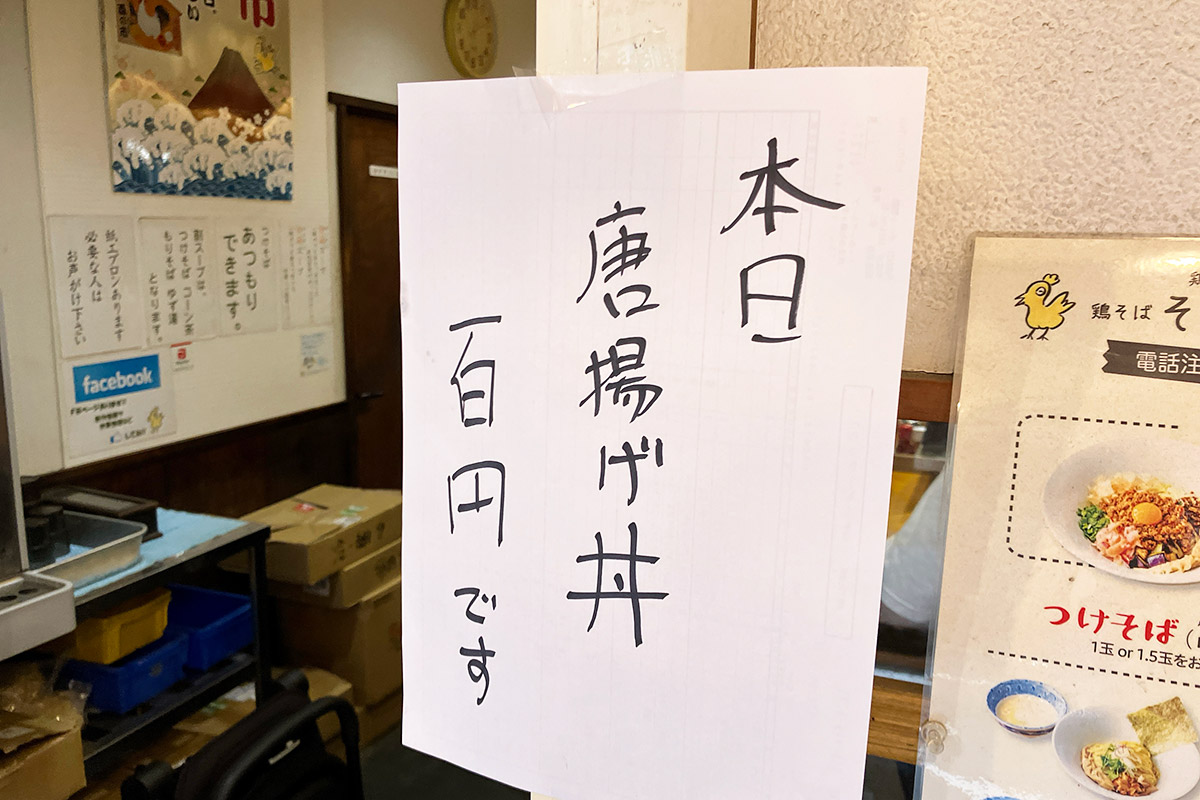 本日
唐揚げ丼
百円です
市
つけそば
あつもり
できます。
割スープは、
つけそば コーン茶
もりそば ゆず湯
となります。
紙エプロンあります
必要な人は
お声がけ下さい
facebook
鶏そば そ
電話注
つけそば
1玉 or 1.5玉をお